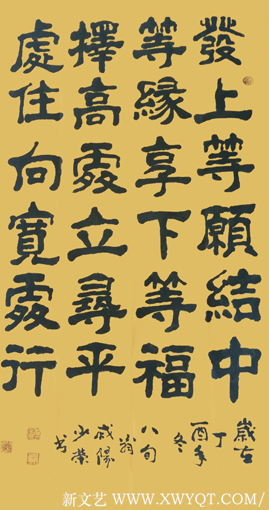 發上等願結中
等緣享下等福
擇高處立尋平
處住向寬處行
歲在
丁
酉年
冬
八旬
翁
咸陽
少榮
书
新文艺 www.XWYQT.COM